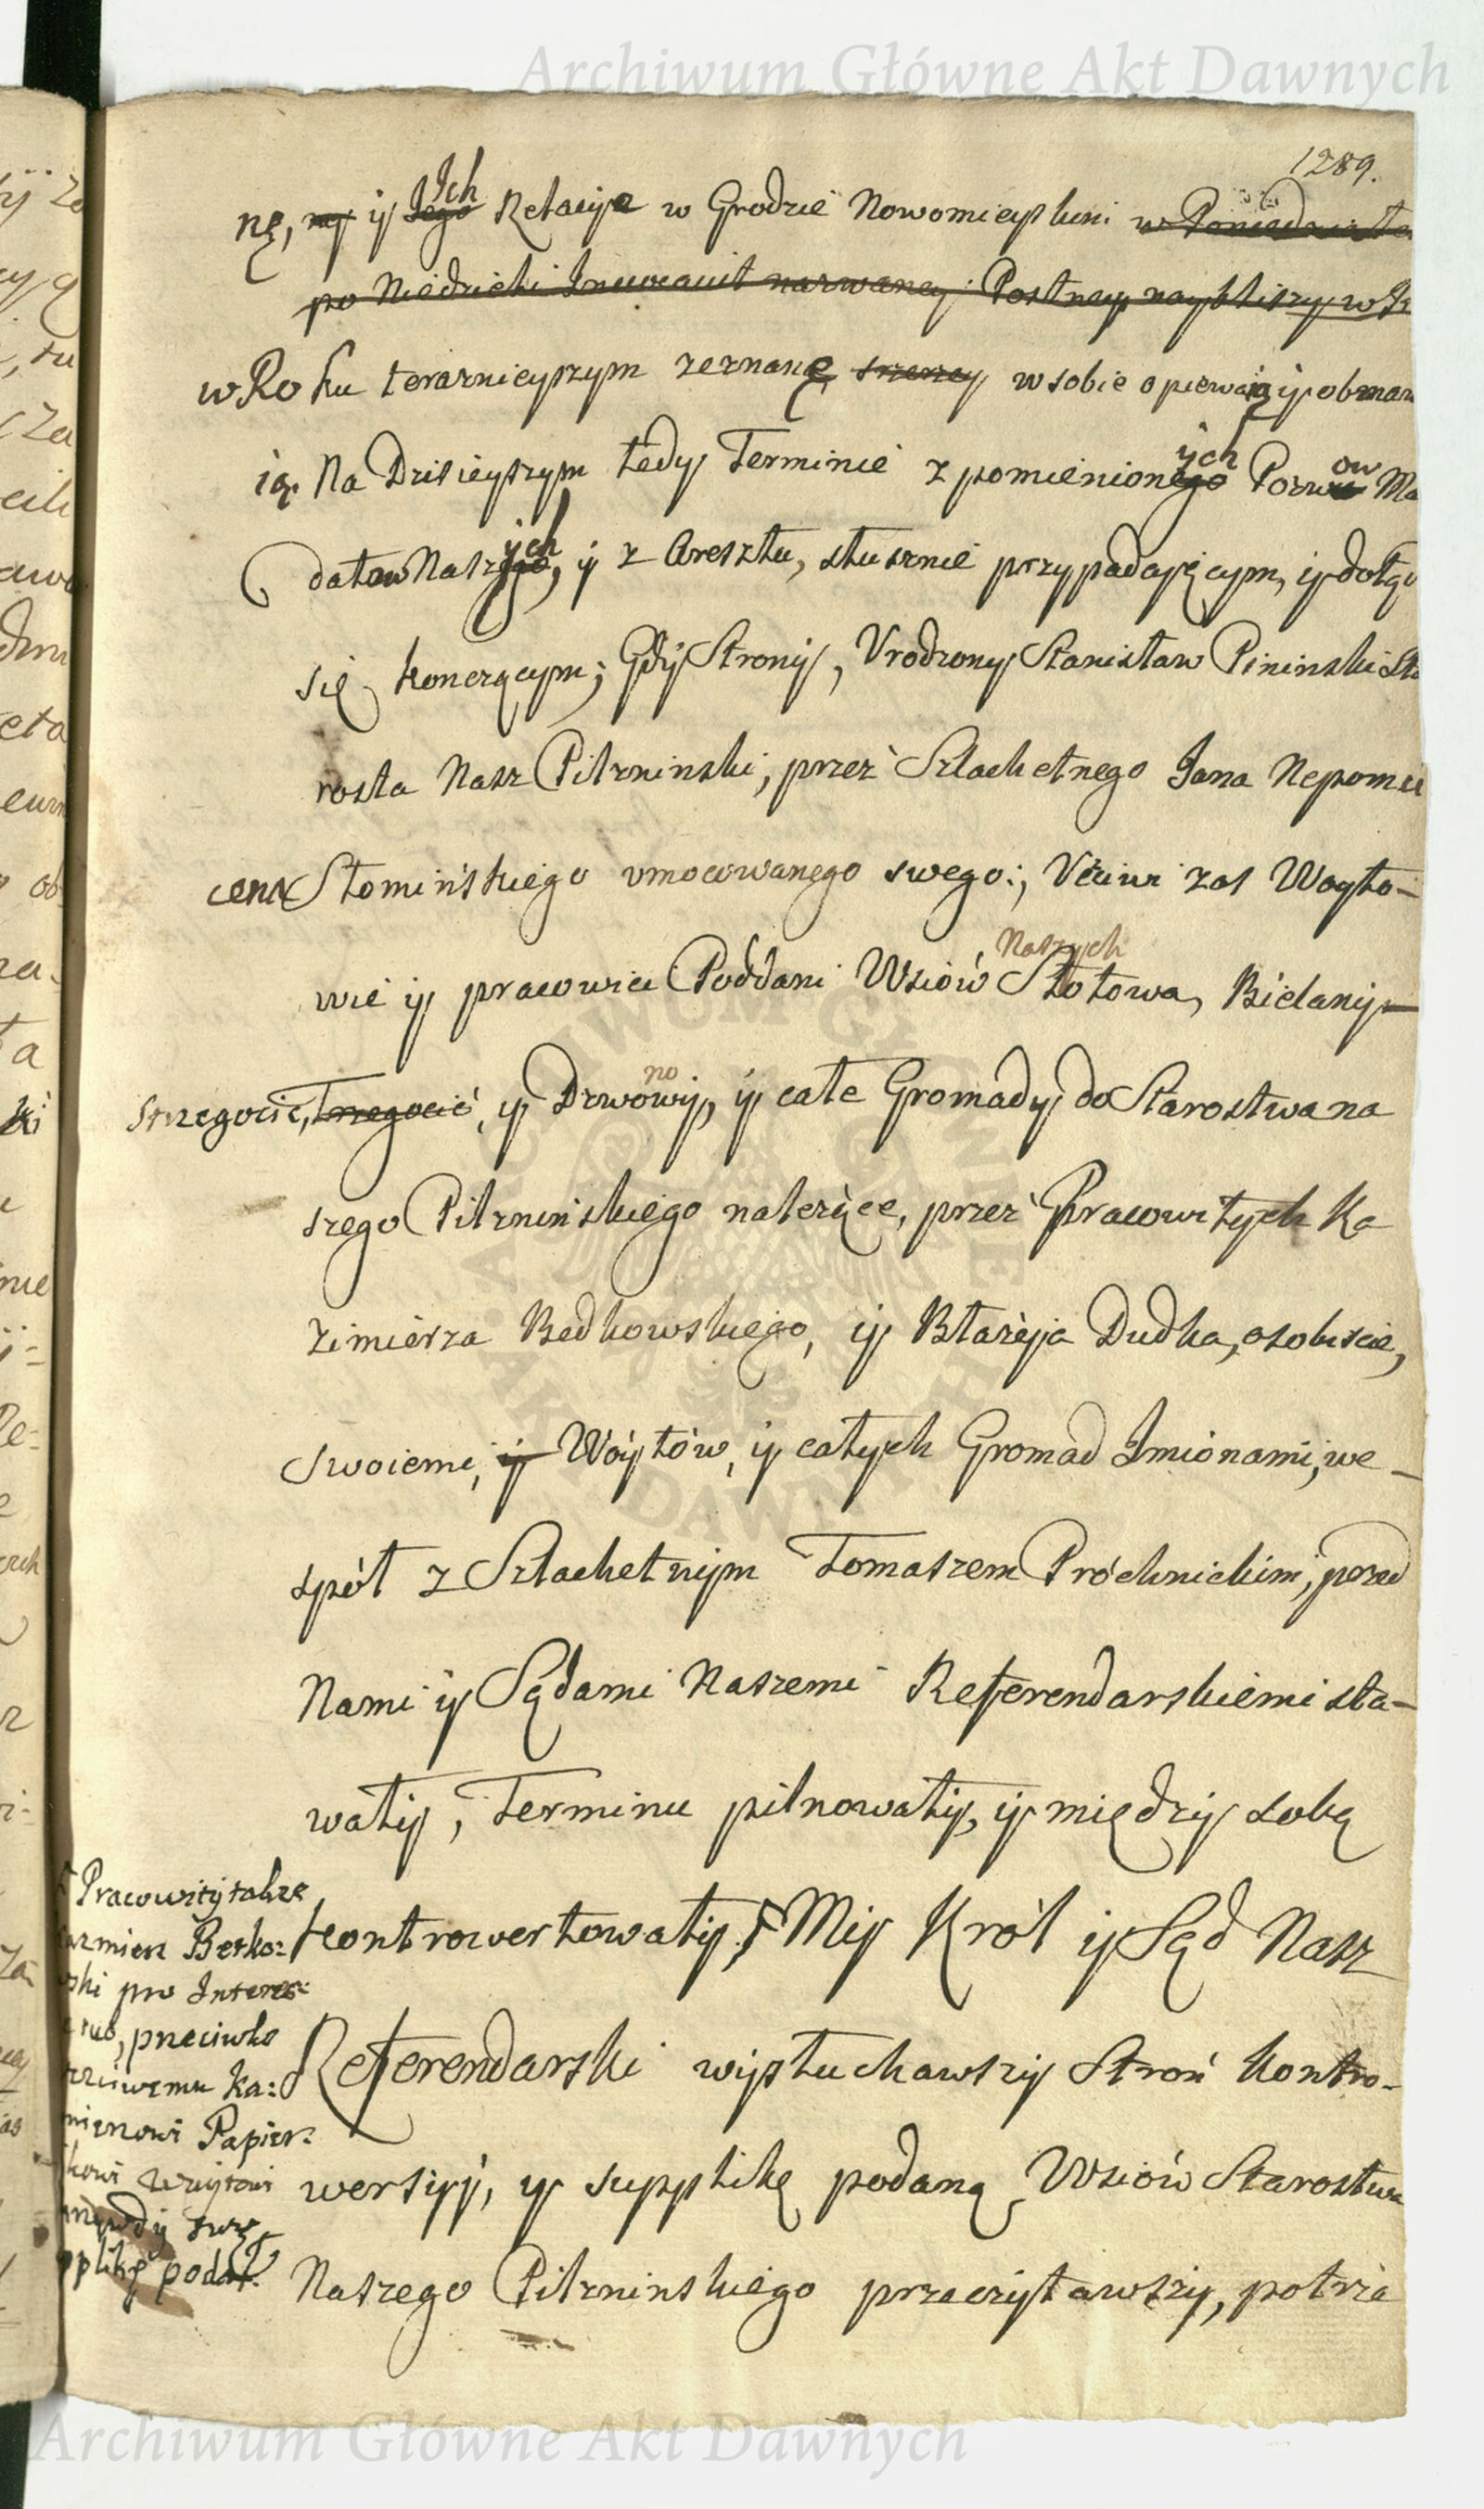 Archiwum Główne Akt Dawnych
1289.
nę, ny ÿ Jego Ich Relacye w Grodzie Nowomieyskim w Poniedziałe
po Niedzieli Invocavit nazwaney Postney naybliszy w Je
w Roku terażnieyszym zeznane szerzey w sobie opiewaią ÿ obmaw
ią. Na Dzisieyszym tedy Terminie z pomienionego ych Pozwu ow Ma
datow Naszego ych, ÿ z Aresztu, słusznie przypadaiącym, ÿ dotąd
się konczącym; Gdÿ Stronÿ, Vrodzony Stanisław Pininski Sta
rosta Nasz Pilzninski, przez Szlachetnego Jana Nepomu
cena Słomińskiego vmocowanego swego:, Vcciwi zas Woyto-
wie ÿ pracowici Poddani Wsiów Naszych Słotowa, Bielanÿ
Strzegocic, Trzegocic, ÿ Dzwonowÿ, ÿ całe Gromadÿ do Starostwa na
szego Pilznińskiego należące, przez Pracowitych Ka
zimierza Bedkowskiego, ÿ Błażeja Dudka, osobiscie,
swoiemi, ÿ Woÿtów, ÿ całych Gromad Jmionami, we-
spół z Szlachetnÿm Tomaszem Próchnickim, przed
Nami ÿ Sądami Naszemi Referendarskiemi sta-
wałÿ, Terminu pilnowałÿ, ÿ międzÿ sobą
kontrowertowałÿ, Mÿ Król ÿ Sąd Nasz
Referendarski wÿsłuchawszÿ Stron kontro-
wersÿÿ, ÿ supplikę podaną Wsiów Starostwa
Naszego Pilzninskiego przeczÿtawszÿ, potrze
Pracowitÿ także
azmierz Betko:
ski pro Interes:
suo, przeciwko
czciwemu Ka:
mierzowi Papier:
kowi Wóytowi
swę
pplikę podał.
Archiwum Główne Akt Dawnych